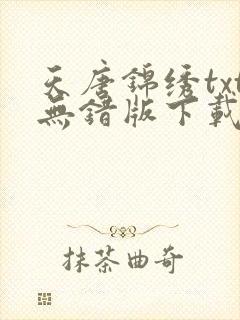 天唐锦绣txt
無錯版下載
抹茶曲奇